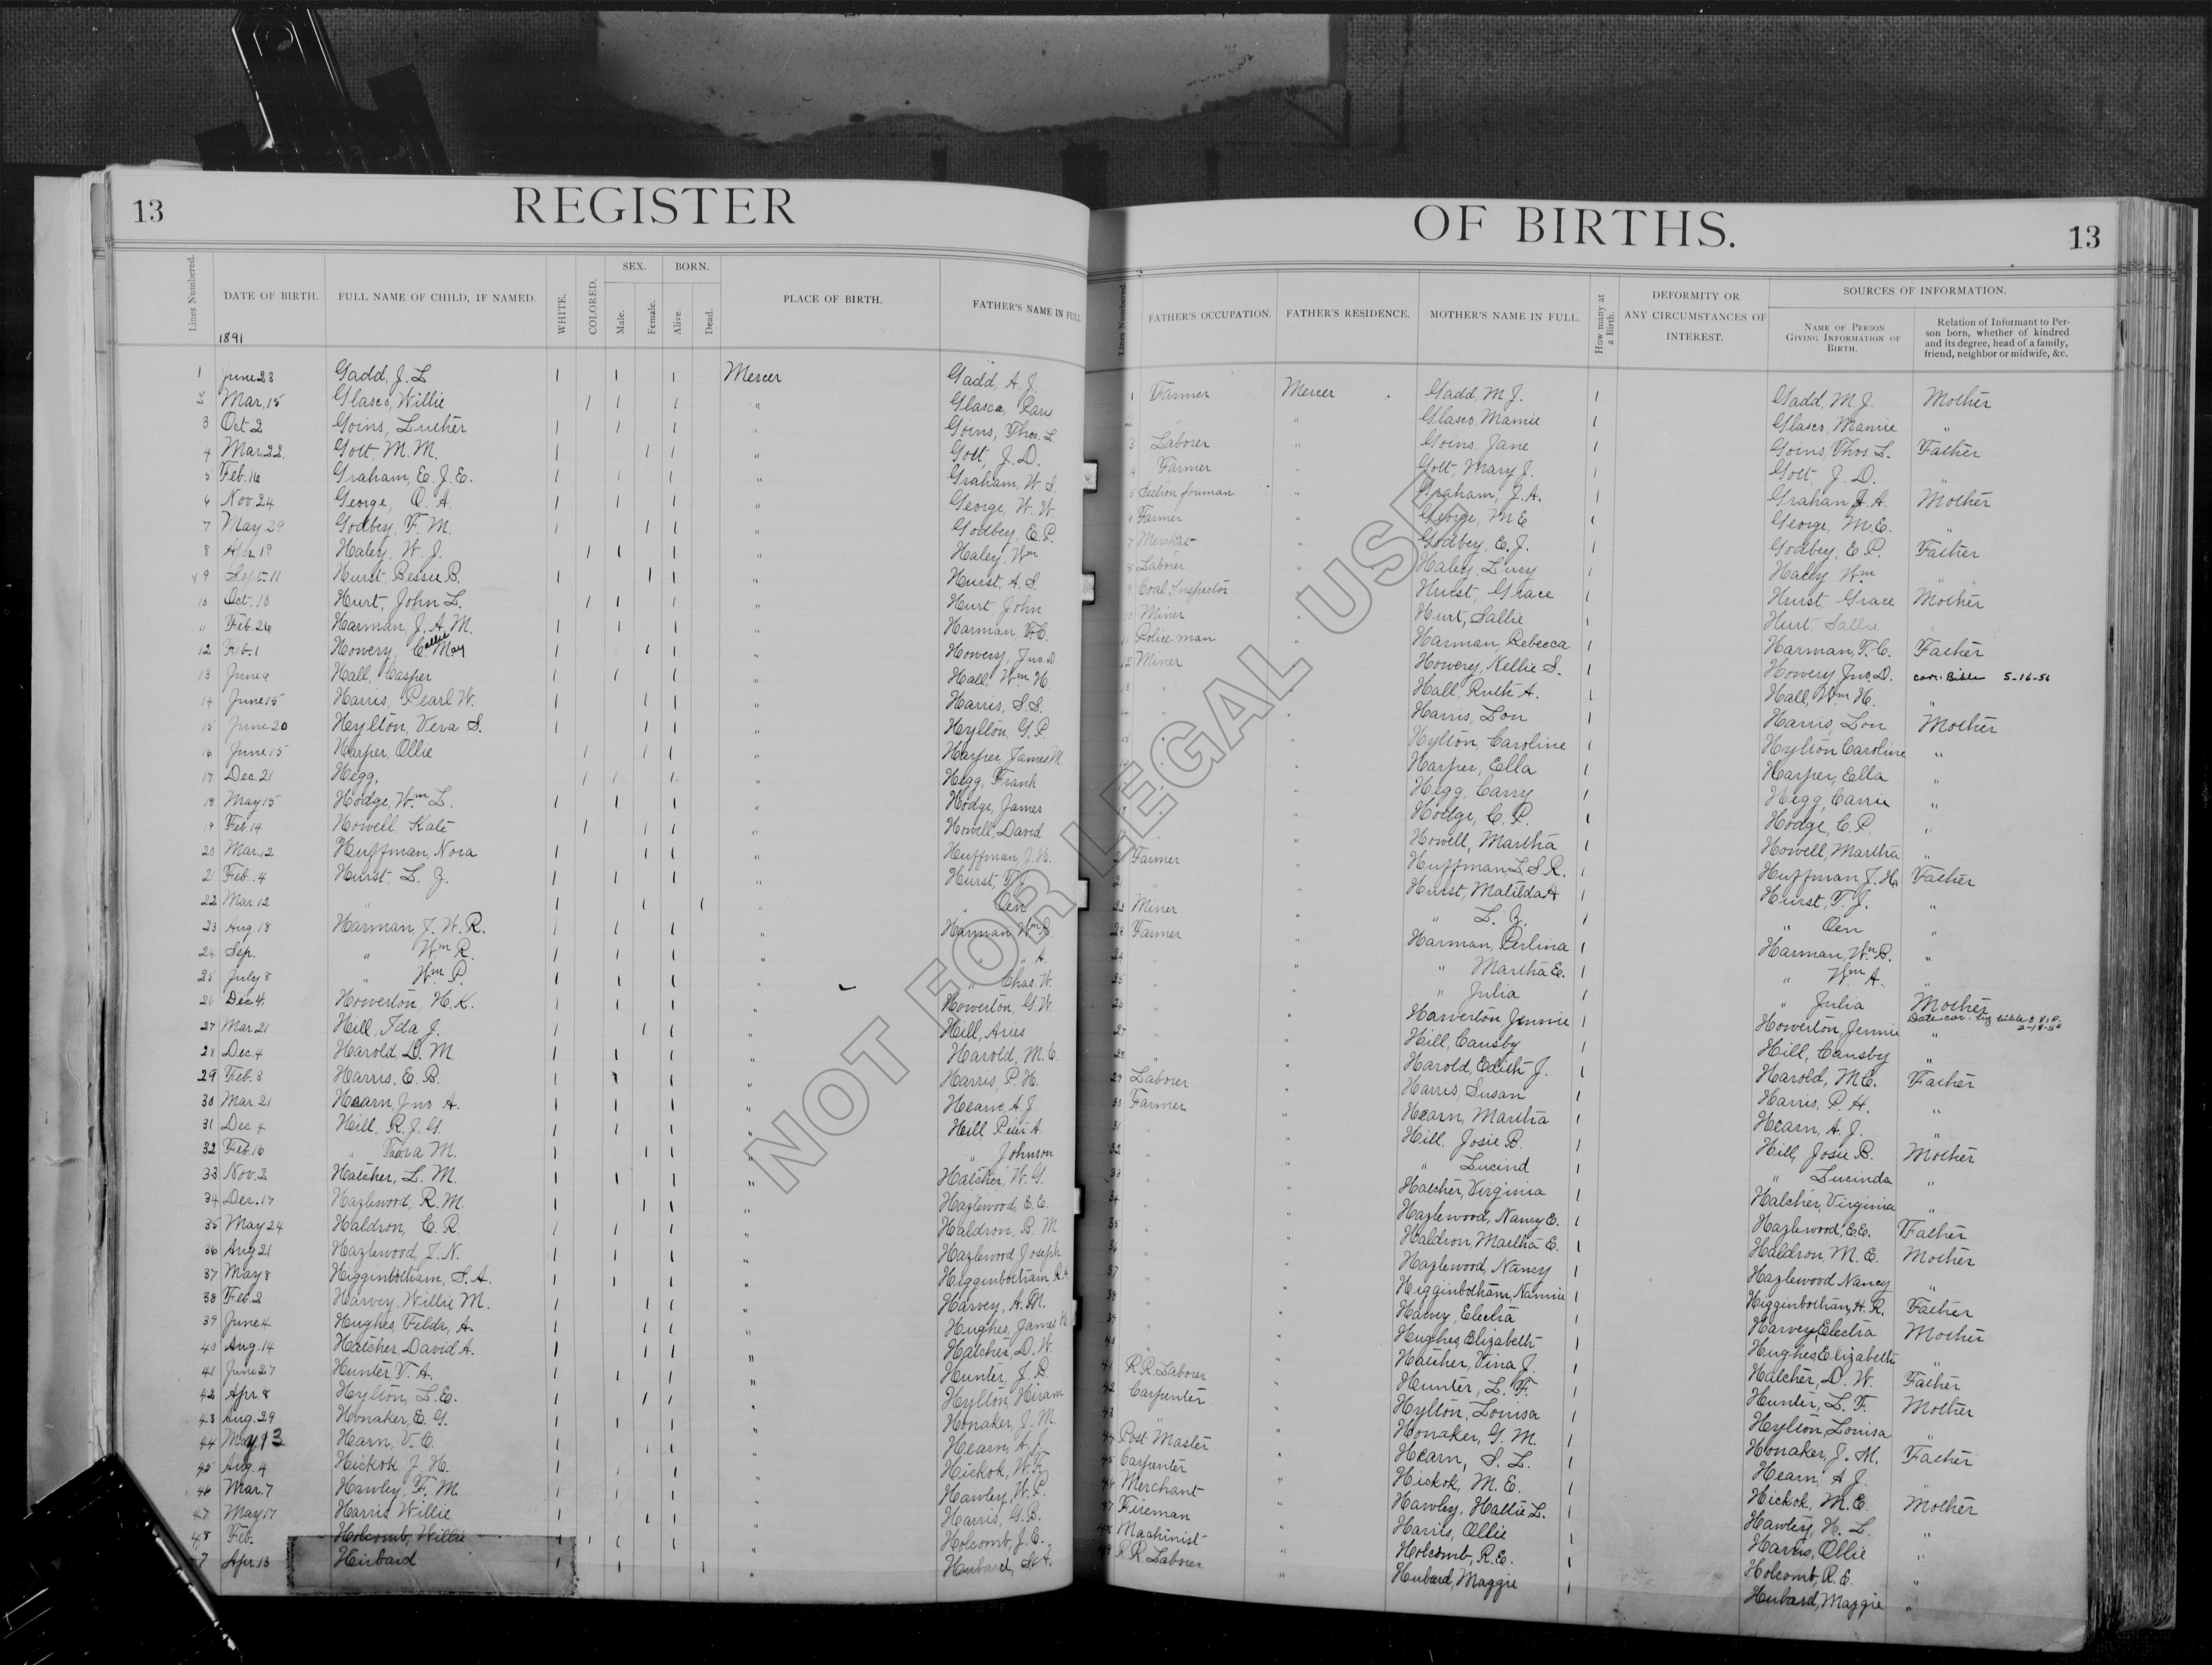 13 REGISTER OF BIRTHS. 13
Lines Numbered. DATE OF BIRTH. FULL NAME OF CHILD, IF NAMED. WHITE. COLORED. SEX. Male. Female. BORN. Alive. Dead. PLACE OF BIRTH. FATHER'S NAME IN FULL
Lines Numbered. FATHER'S OCCUPATION. FATHER'S RESIDENCE. MOTHER'S NAME IN FULL. How many at a Birth. DEFORMITY OR ANY CIRCUMSTANCES OF INTEREST. SOURCES OF INFORMATION. NAME OF PERSON GIVING INFORMATION OF BIRTH. Relation of Informant to Person born, whether of kindred and its degree, head of a family, friend, neighbor or midwife, &c.
1891
1 June 23 Gadd, J. L 1 1 1 Mercer Gadd, A. J. 1 Farmer Mercer Gadd, M J. 1 Gadd, M J. Mother
2 Mar. 15 Glasco, Willie 1 1 1 " Glasco, 2 " " Glasco, Mamie 1 Glasco, Mamie "
3 Oct 2 Goins, Luther 1 1 1 " Goins, Thos. L. 3 Laborer " Goins, Jane 1 Goins, Thos. L. Father
4 Mar. 22 Gott, M. M. 1 1 1 " Gott, J. D. 4 Farmer " Gott, Mary J. 1 Gott, J. D. "
5 Feb. 16 Graham, E. J. E. 1 1 1 " Graham, W. S. 5 Section foreman " Graham, J. A. 1 Graham J. A. Mother
6 Nov. 24 George, O. A. 1 1 1 " George, W. W. 6 Farmer " George, M E 1 George, M E. "
7 May 29 Godbey, F. M. 1 1 1 " Godbey, E. P. 7 " Godbey, E. J. 1 Godbey, E P. Father
8 Apr. 19 Haley, W. J. 1 1 1 " Haley, Wm 8 Laborer " Haley, Lucy 1 Haley Wm "
9 Sept. 11 Hurst, Bessie B. 1 1 1 " Hurst, A. S. 9 Coal Inspector " Hurst, Grace 1 Hurst, Grace Mother
10 Oct. 10 Hurt, John L. 1 1 1 " Hurt John 10 Miner " Hurt, Sallie 1 Hurt, Sallie
11 Feb. 26 Harman, J. A. M. 1 1 1 " Harman, T. C. 11 Police man " Harman, Rebecca 1 Harman, T. C. Father
12 Feb. 1 Howery, Callie May 1 1 1 " Howery, Jno. D 12 Miner " Howery, Nellie S. 1 Howery Jno. D. corr. Bible 5-16-56
13 June 9 Hall, Casper 1 1 1 " Hall, Wm H. 13 " " Hall, Ruth A. 1 Hall, Wm H. "
14 June 15 Harris, Pearl W. 1 1 1 " Harris, S. S. 14 " " Harris, Lou 1 Harris, Lou Mother
15 June 20 Hylton, Vera S. 1 1 1 " Hylton, G. P. 15 " " Hylton, Caroline 1 Hylton Caroline "
16 June 15 Harper, Ollie 1 1 1 " Harper, James M. 16 " " Harper, Ella 1 Harper, Ella "
17 Dec. 21 Hegg, 1 1 1 " Hegg, Frank 17 " " Hegg, Carry 1 Hegg, Carrie "
18 May 15 Hodge, Wm L. 1 1 1 " Hodge, James 18 " " Hodge, C. P. 1 Hodge, C. P. "
19 Feb. 14 Howell, Kate 1 1 1 " Howell, David 19 " " Howell, Martha 1 Howell, Martha "
20 Mar. 12 Huffman, Nora 1 1 1 " Huffman, J. H. Farmer " Huffman, L. S R. 1 Huffman J. H. Father
21 Feb. 4 Hurst, L. Z. 1 1 1 " Hurst, T. J. " " Hurst, Matilda A 1 Hurst, T. J. "
22 Mar. 12 " 1 1 1 " " Oen 22 Miner " " L. Z. 1 " Oen "
23 Aug. 18 Harman, J. W. R. 1 1 1 " Harman, Wm B. 23 Farmer " Harman, Perlina 1 Harman, Wm B. "
24 Sep. " Wm R. 1 1 1 " " " A. 24 " " " Martha E. 1 " Wm A. "
25 July 8 " Wm P. 1 1 1 " " Chas. W. 25 " " " Julia 1 " Julia Mother
26 Dec 4 Howerton, H. K. 1 1 1 " Howerton, G. W. 26 " " Howerton Jennie 1 Howerton, Jennie "
27 Mar. 21 Hill, Ida J. 1 1 1 " Hill, Aries 27 " " Hill, Cansby 1 Hill, Cansby "
28 Dec. 4 Harold D. M 1 1 1 " Harold, M. C. 28 " " Harold, Edith J. 1 Harold, M C. Father
29 Feb. 3 Harris, E. B. 1 1 1 " Harris, P. H. 29 Laborer " Harris, Susan 1 Harris, P. H. "
30 Mar. 21 Hearn, Jno A. 1 1 1 " Hearn, A J 30 Farmer " Hearn, Martha 1 Hearn, A. J. "
31 Dec 4 Hill, R. J. G. 1 1 1 " Hill Peter A. 31 " " Hill, Josie B. 1 Hill, Josie B. Mother
32 Feb. 16 " M. 1 1 1 " " Johnson 32 " " " Lucind 1 " Lucinda "
33 Nov. 2 Hatcher, L. M. 1 1 1 " Hatcher, W. G. 33 " " Hatcher, Virginia 1 Hatcher, Virginia "
34 Dec. 17 Hazlewood, R. M. 1 1 1 " Hazlewood, E. E. 34 " " Hazlewood, Nancy E. 1 Hazlewood, E. E. Father
35 May 24 Haldron, C. R 1 1 1 " Haldron, B. M 35 " " Haldron, Martha E. 1 Haldron, M. E. Mother
36 Aug 21 Hazlewood, J. N. 1 1 1 " Hazlewood Joseph 36 " " Hazlewood, Nancy 1 Hazlewood Nancy "
37 May 8 Higginbotham, S. A. 1 1 1 " Higginbotham 37 " " Higginbotham, Nannie 1 Higginbotham, H. R. Father
38 Feb. 2 Harvey, Willie M. 1 1 1 " Harvey, A. M. 38 " " Harvey, Electra 1 Harvey Electra Mother
39 June 4 Hughes, Felda, A. 1 1 1 " Hughes, James 39 " " Hughes, Elizabeth 1 Hughes Elizabeth "
40 Aug. 14 Hatcher, David A. 1 1 1 " Hatcher, D. W. 40 " " Hatcher, Vina J. 1 Hatcher, D. W. Father
41 June 27 Hunter, V. A. 1 1 1 " Hunter, J. B. 41 R. R. Laborer " Hunter, L. F. 1 Hunter, L. F. Mother
42 Apr. 8 Hylton, L. E. 1 1 1 " Hylton, Hiram 42 Carpenter " Hylton, Louisa 1 Hylton Louisa "
43 Aug. 29 Honaker, E. G. 1 1 1 " Honaker, J. M. 43 " " Honaker, G. M. 1 Honaker, J. M. Father
44 May 13 Hearn, V. C. 1 1 1 " Hearn, A. J. 44 Post Master " Hearn, S. L. 1 Hearn, A J. "
45 Aug. 4 Hickok, J. H. 1 1 1 " Hickok, W. F. 45 Carpenter " Hickok, M. E. 1 Hickok, M. E. Mother
46 Mar. 7 Hawley, F. M. 1 1 1 " Hawley, W. P. 46 Merchant " Hawley, Hallie L. 1 Hawley, H. L. "
47 May 17 Harris Willie 1 1 1 " Harris, G. B. 47 Fireman " Harris, Ollie 1 Harris, Ollie "
48 Feb. Holcomb, Willie 1 1 1 " Holcomb, J. E. 48 Machinist " Holcomb, R. E. 1 Holcomb, R. E. "
Apr. 13 Hubard 1 1 1 " Hubard, 49 R. R. Laborer " Hubard, Maggie 1 Hubard, Maggie "
NOT FOR LEGAL USE